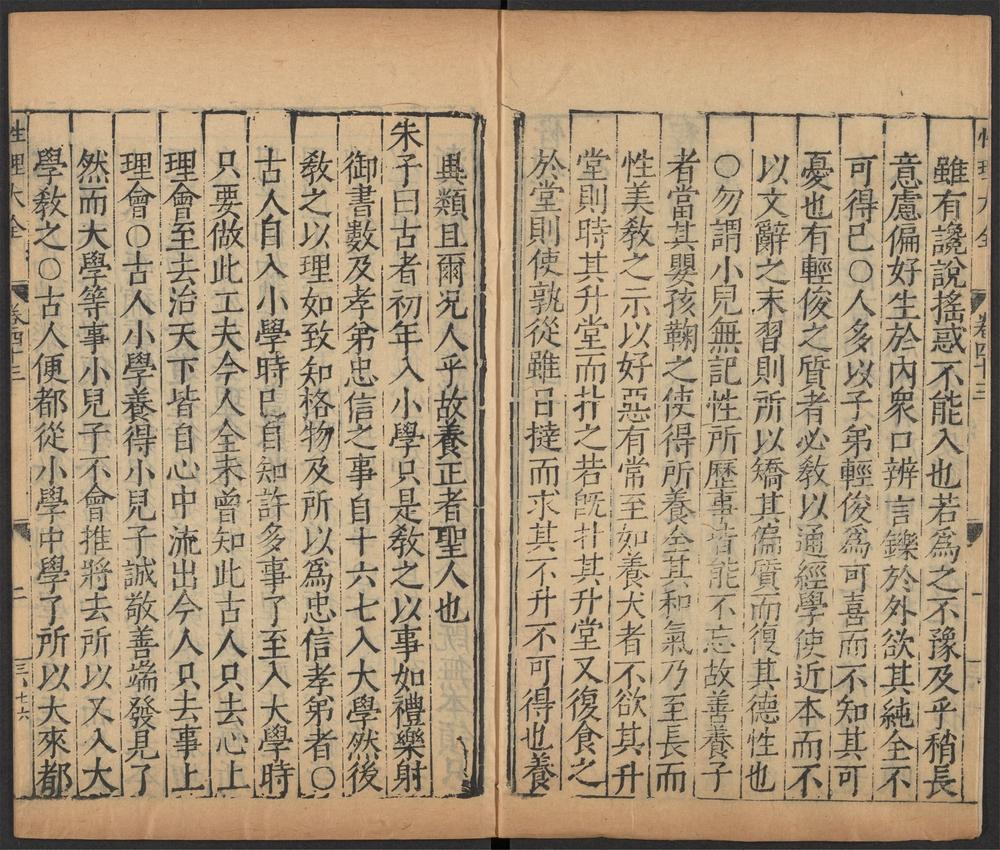 性理大全 卷四十三
雖有讒說搖惑不能入也若爲之不豫及乎稍長
意慮偏好生於內衆口辨言鑠於外欲其純全不
可得已○人多以子弟輕俊爲可喜而不知其可
憂也有輕俊之質者必敎以通經學使近本而不
以文辭之末習則所以矯其偏質而復其德性也
○勿謂小兒無記性所歷事皆能不忘故善養子
者當其嬰孩鞠之使得所養全其和氣乃至長而
性美敎之示以好惡有常至如養犬者不欲其升
堂則時其升堂而扑之若旣扑其升堂又復食之
於堂則使孰從雖日撻而求其不升不可得也養
異類且爾況人乎故養正者聖人也
朱子曰古者初年入小學只是敎之以事如禮樂射
御書數及孝弟忠信之事自十六七入大學然後
敎之以理如致知格物及所以爲忠信孝弟者○
古人自入小學時已自知許多事了至入大學時
只要做此工夫今人全未曾知此古人只去心上
理會至去治天下皆自心中流出今人只去事上
理會○古人小學養得小兒子誠敬善端發見了
然而大學等事小兒子不會推將去所以又入大
學敎之○古人便都從小學中學了所以大來都
性理大全 卷四十三 二